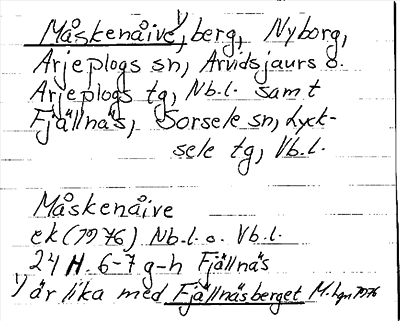 Måskenåive,¹⁾ berg, Nyborg,
Arjeplogs sn, Arvidsjaurs o.
Arjeplogs tg, Nb.l. samt
Fjällnäs, Sorsele sn, Lyck-
sele tg, Vb.l.
Måskenåive
ek (1976) Nb.l. o. Vb.l.
24 H. 6-7 g-h Fjällnäs
¹⁾ är lika med Fjällnäsberget M. Lgn 1976